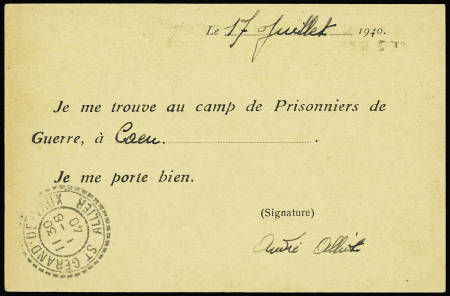 Le 17 Juillet 1940.
Je me trouve au camp de Prisonniers de
Guerre, à Caen.
Je me porte bien.
(Signature)
André
ST GERAND-DE
ALLIER
11 - 8
40